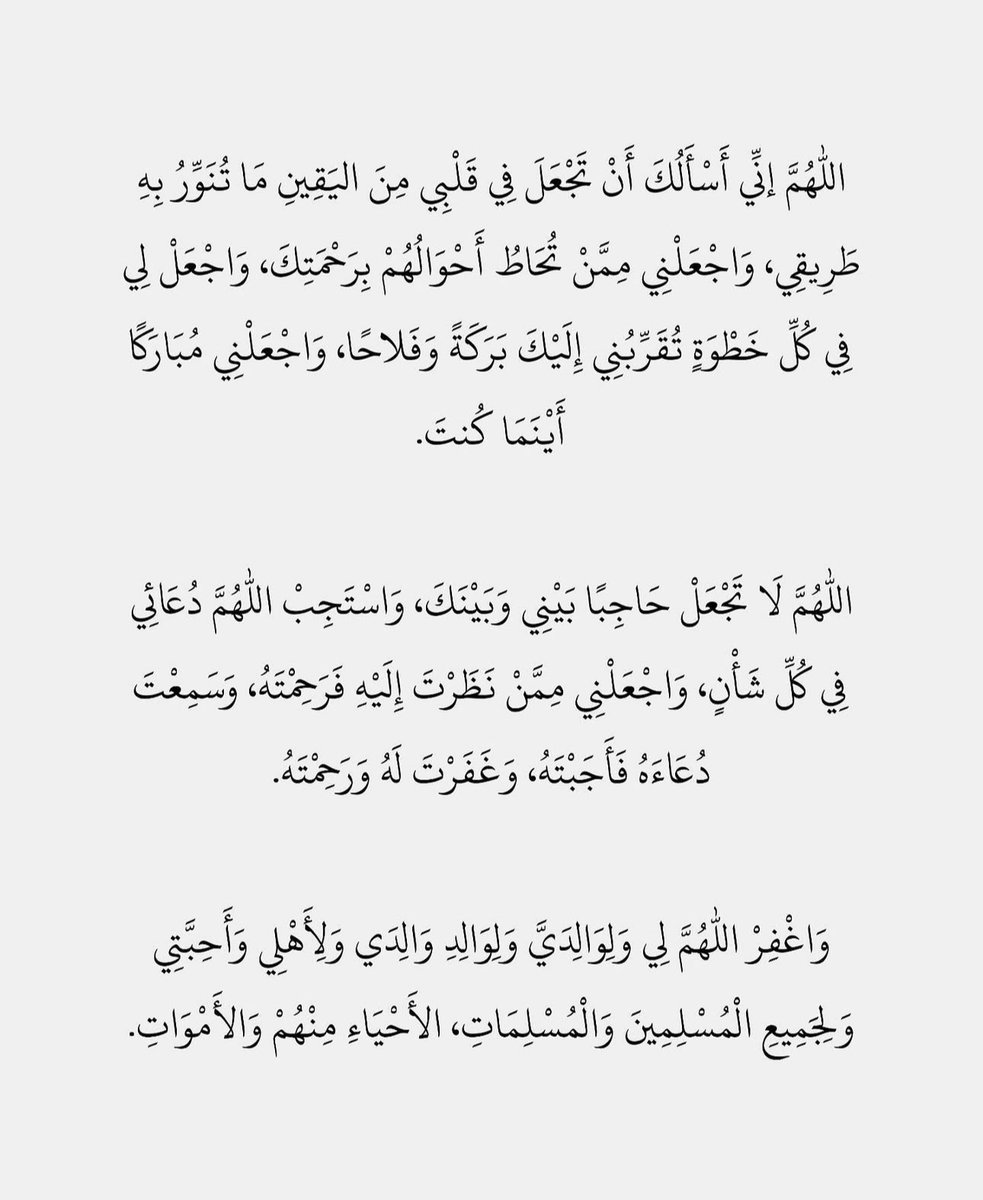 اللّٰهُمَّ إنِّي أَسْأَلُكَ أَنْ تَجْعَلَ فِي قَلْبِي مِنَ اليَقِينِ مَا تُنَوِّرُ بِهِ
طَرِيقِي، وَاجْعَلْنِي مِمَّنْ تُحَاطُ أَحْوَالُهُمْ بِرَحْمَتِكَ، وَاجْعَلْ لِي
فِي كُلِّ خَطْوَةٍ تُقَرِّبُنِي إِلَيْكَ بَرَكَةً وَفَلاحًا، وَاجْعَلْنِي مُبَارَكًا
أَيْنَمَا كُنتَ.
اللّٰهُمَّ لَا تَجْعَلْ حَاجِبًا بَيْنِي وَبَيْنَكَ، وَاسْتَجِبْ اللّٰهُمَّ دُعَائِي
فِي كُلِّ شَأْنٍ، وَاجْعَلْنِي مِمَّنْ نَظَرْتَ إِلَيْهِ فَرَحِمْتَهُ، وَسَمِعْتَ
دُعَاءَهُ فَأَجَبْتَهُ، وَغَفَرْتَ لَهُ وَرَحِمْتَهُ.
وَاغْفِرْ اللّٰهُمَّ لِي وَلِوَالِدَيَّ وَلِوَالِدِ وَالِدَي وَلِأَهْلِي وَأَحِبَّتِي
وَلِجَمِيعِ الْمُسْلِمِينَ وَالْمُسْلِمَاتِ، الأَحْيَاءِ مِنْهُمْ وَالأَمْوَاتِ.